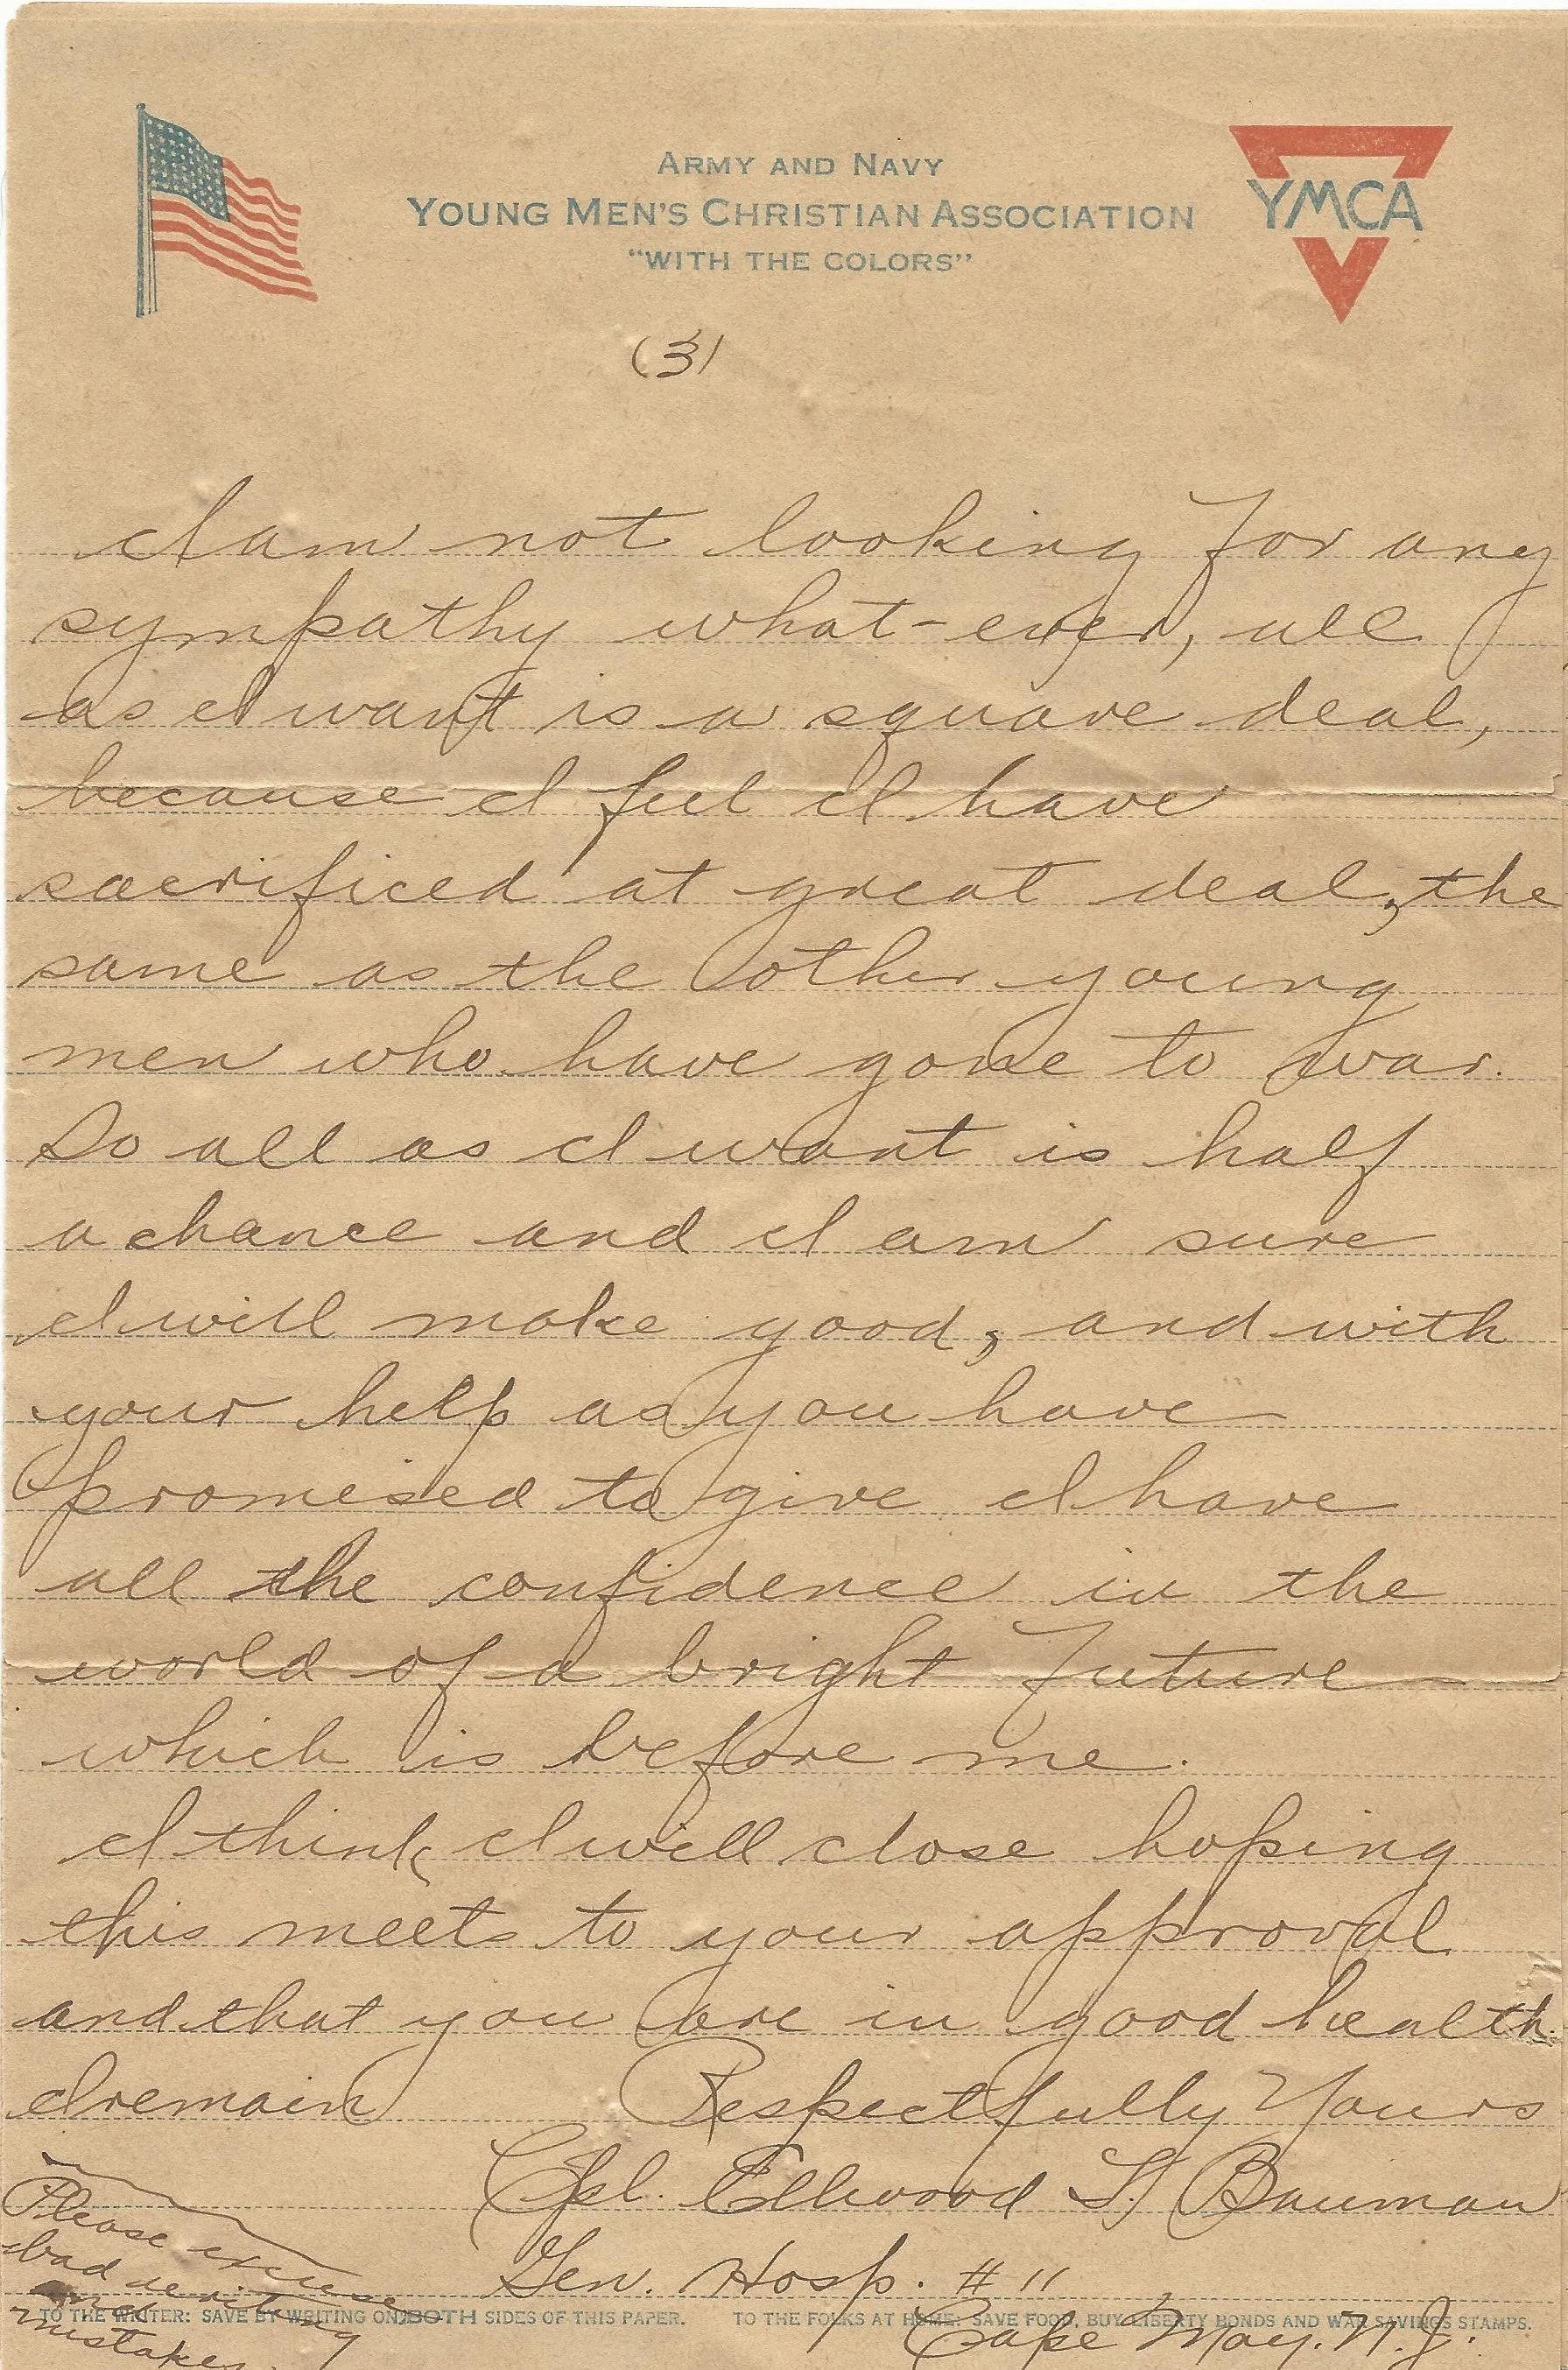 ARMY AND NAVY
YOUNG MEN'S CHRISTIAN ASSOCIATION
"WITH THE COLORS"
YMCA
(3)
I am not looking for any
sympathy what-ever, all
as I want is a square deal,
because I feel I have
sacrificed at great deal, the
same as the other young
men who have gone to war.
So all as I want is half
a chance and I am sure
I will make good, and with
your help as you have
promised to give I have
all the confidence in the
world of a bright future
which is before me.
I think I will close hoping
this meets to your approval
and that you are in good health.
I remain Respectfully Yours
Cpl. Ellwood Bauman
Gen. Hosp. #11
Cape May. N.J.
Please excuse
bad writing
and
mistakes.
TO THE WRITER: SAVE BY WRITING ON BOTH SIDES OF THIS PAPER. TO THE FOLKS AT HOME: SAVE FOOD, BUY LIBERTY BONDS AND WAR SAVINGS STAMPS.